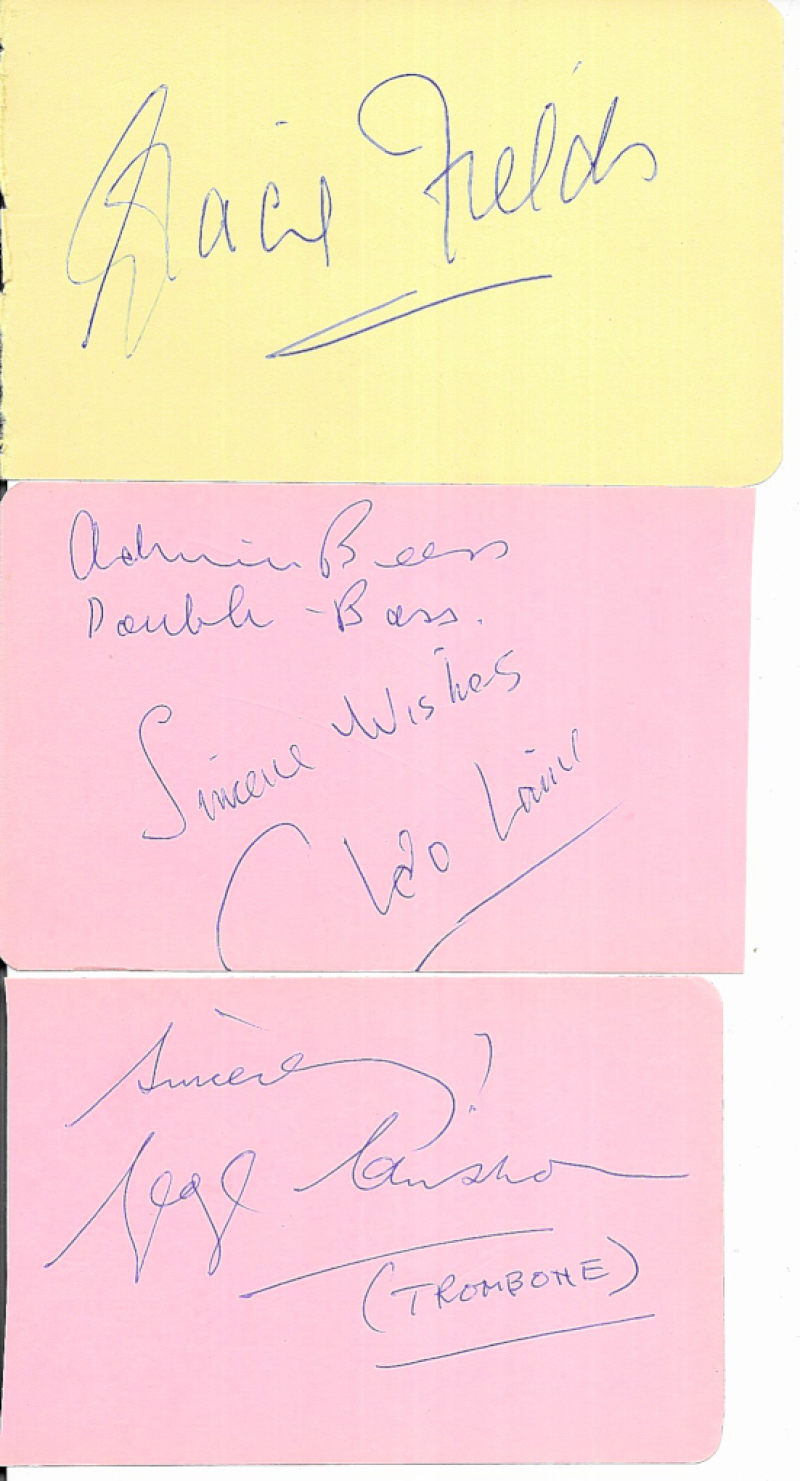 Gracie Fields
Adrian Beers
Double-Bass.
Sincere Wishes
Cleo Laine
Sincerely!
George
(TROMBONE)